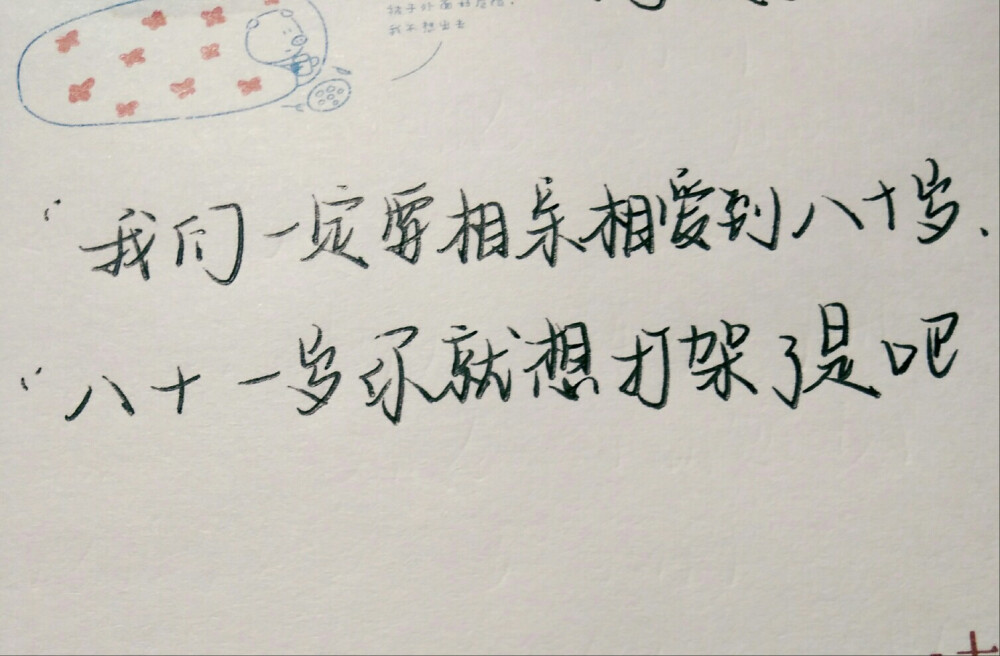 被子外面好危险，
我不想出去
“我们一定要相亲相爱到八十岁.
“八十一岁你就想打架了是吧